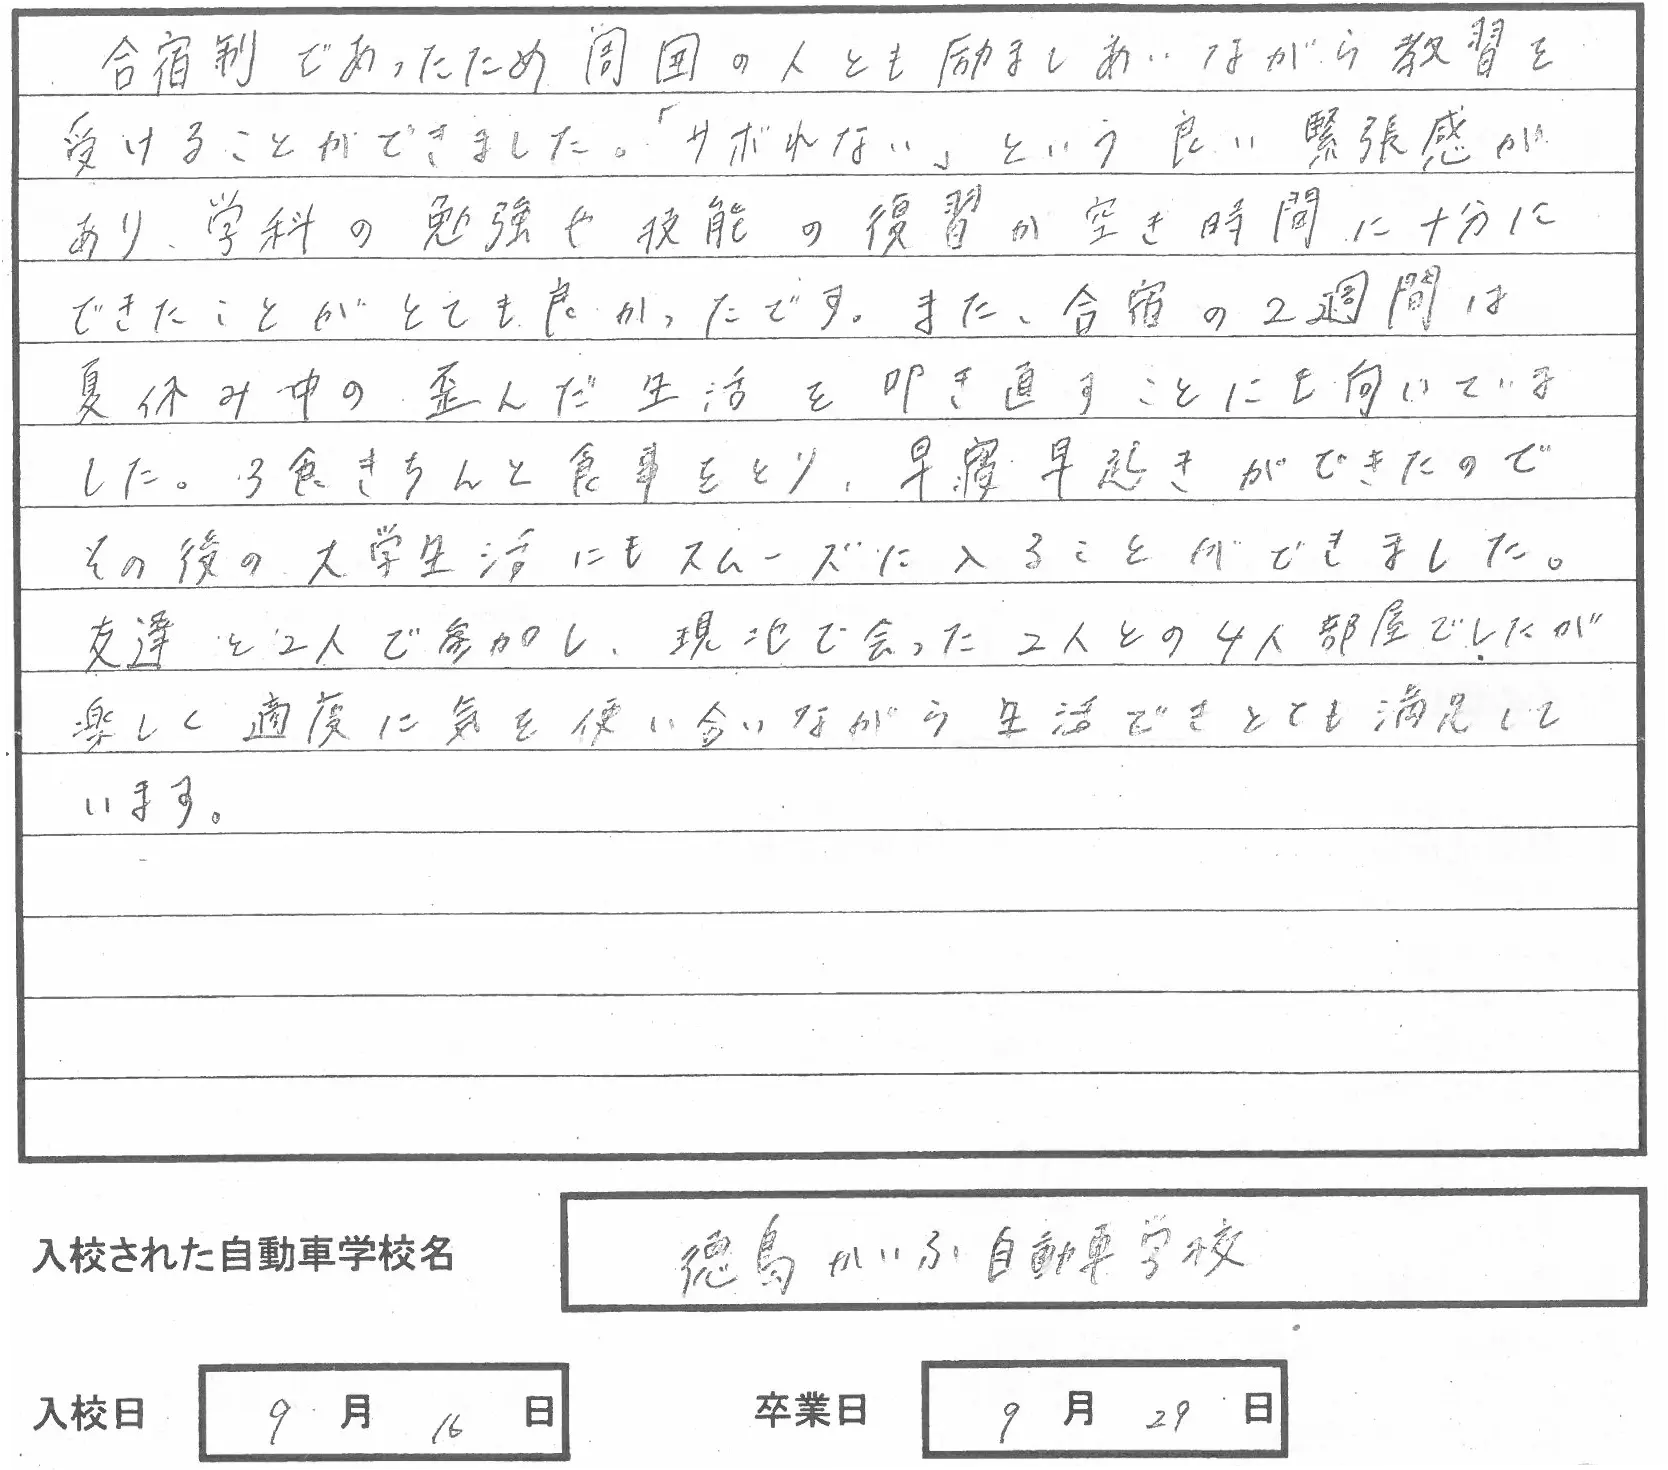 合宿制であったため周囲の人とも励ましあいながら教習を
受けることができました。「サボれない」という良い緊張感が
あり、学科の勉強や技能の復習が空き時間に十分に
できたことがとても良かったです。また、合宿の2週間は
夏休み中の歪んだ生活を叩き直すことにも向いていま
した。3食きちんと食事をとり、早寝早起きができたので
その後の大学生活にもスムーズに入ることができました。
友達と2人で参加し、現地で会った2人との4人部屋でしたが
楽しく適度に気を使い合いながら生活できとても満足して
います。
入校された自動車学校名 徳島かいふ自動車学校
入校日 9月16日 卒業日 9月29日